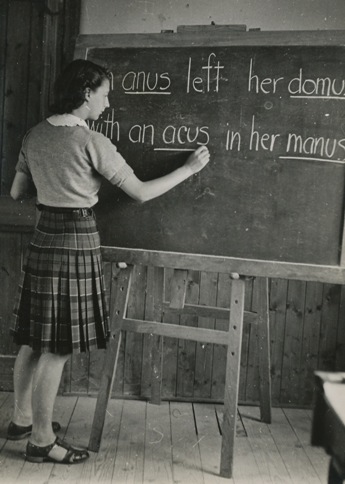 anus left her domus
with an acus in her manus